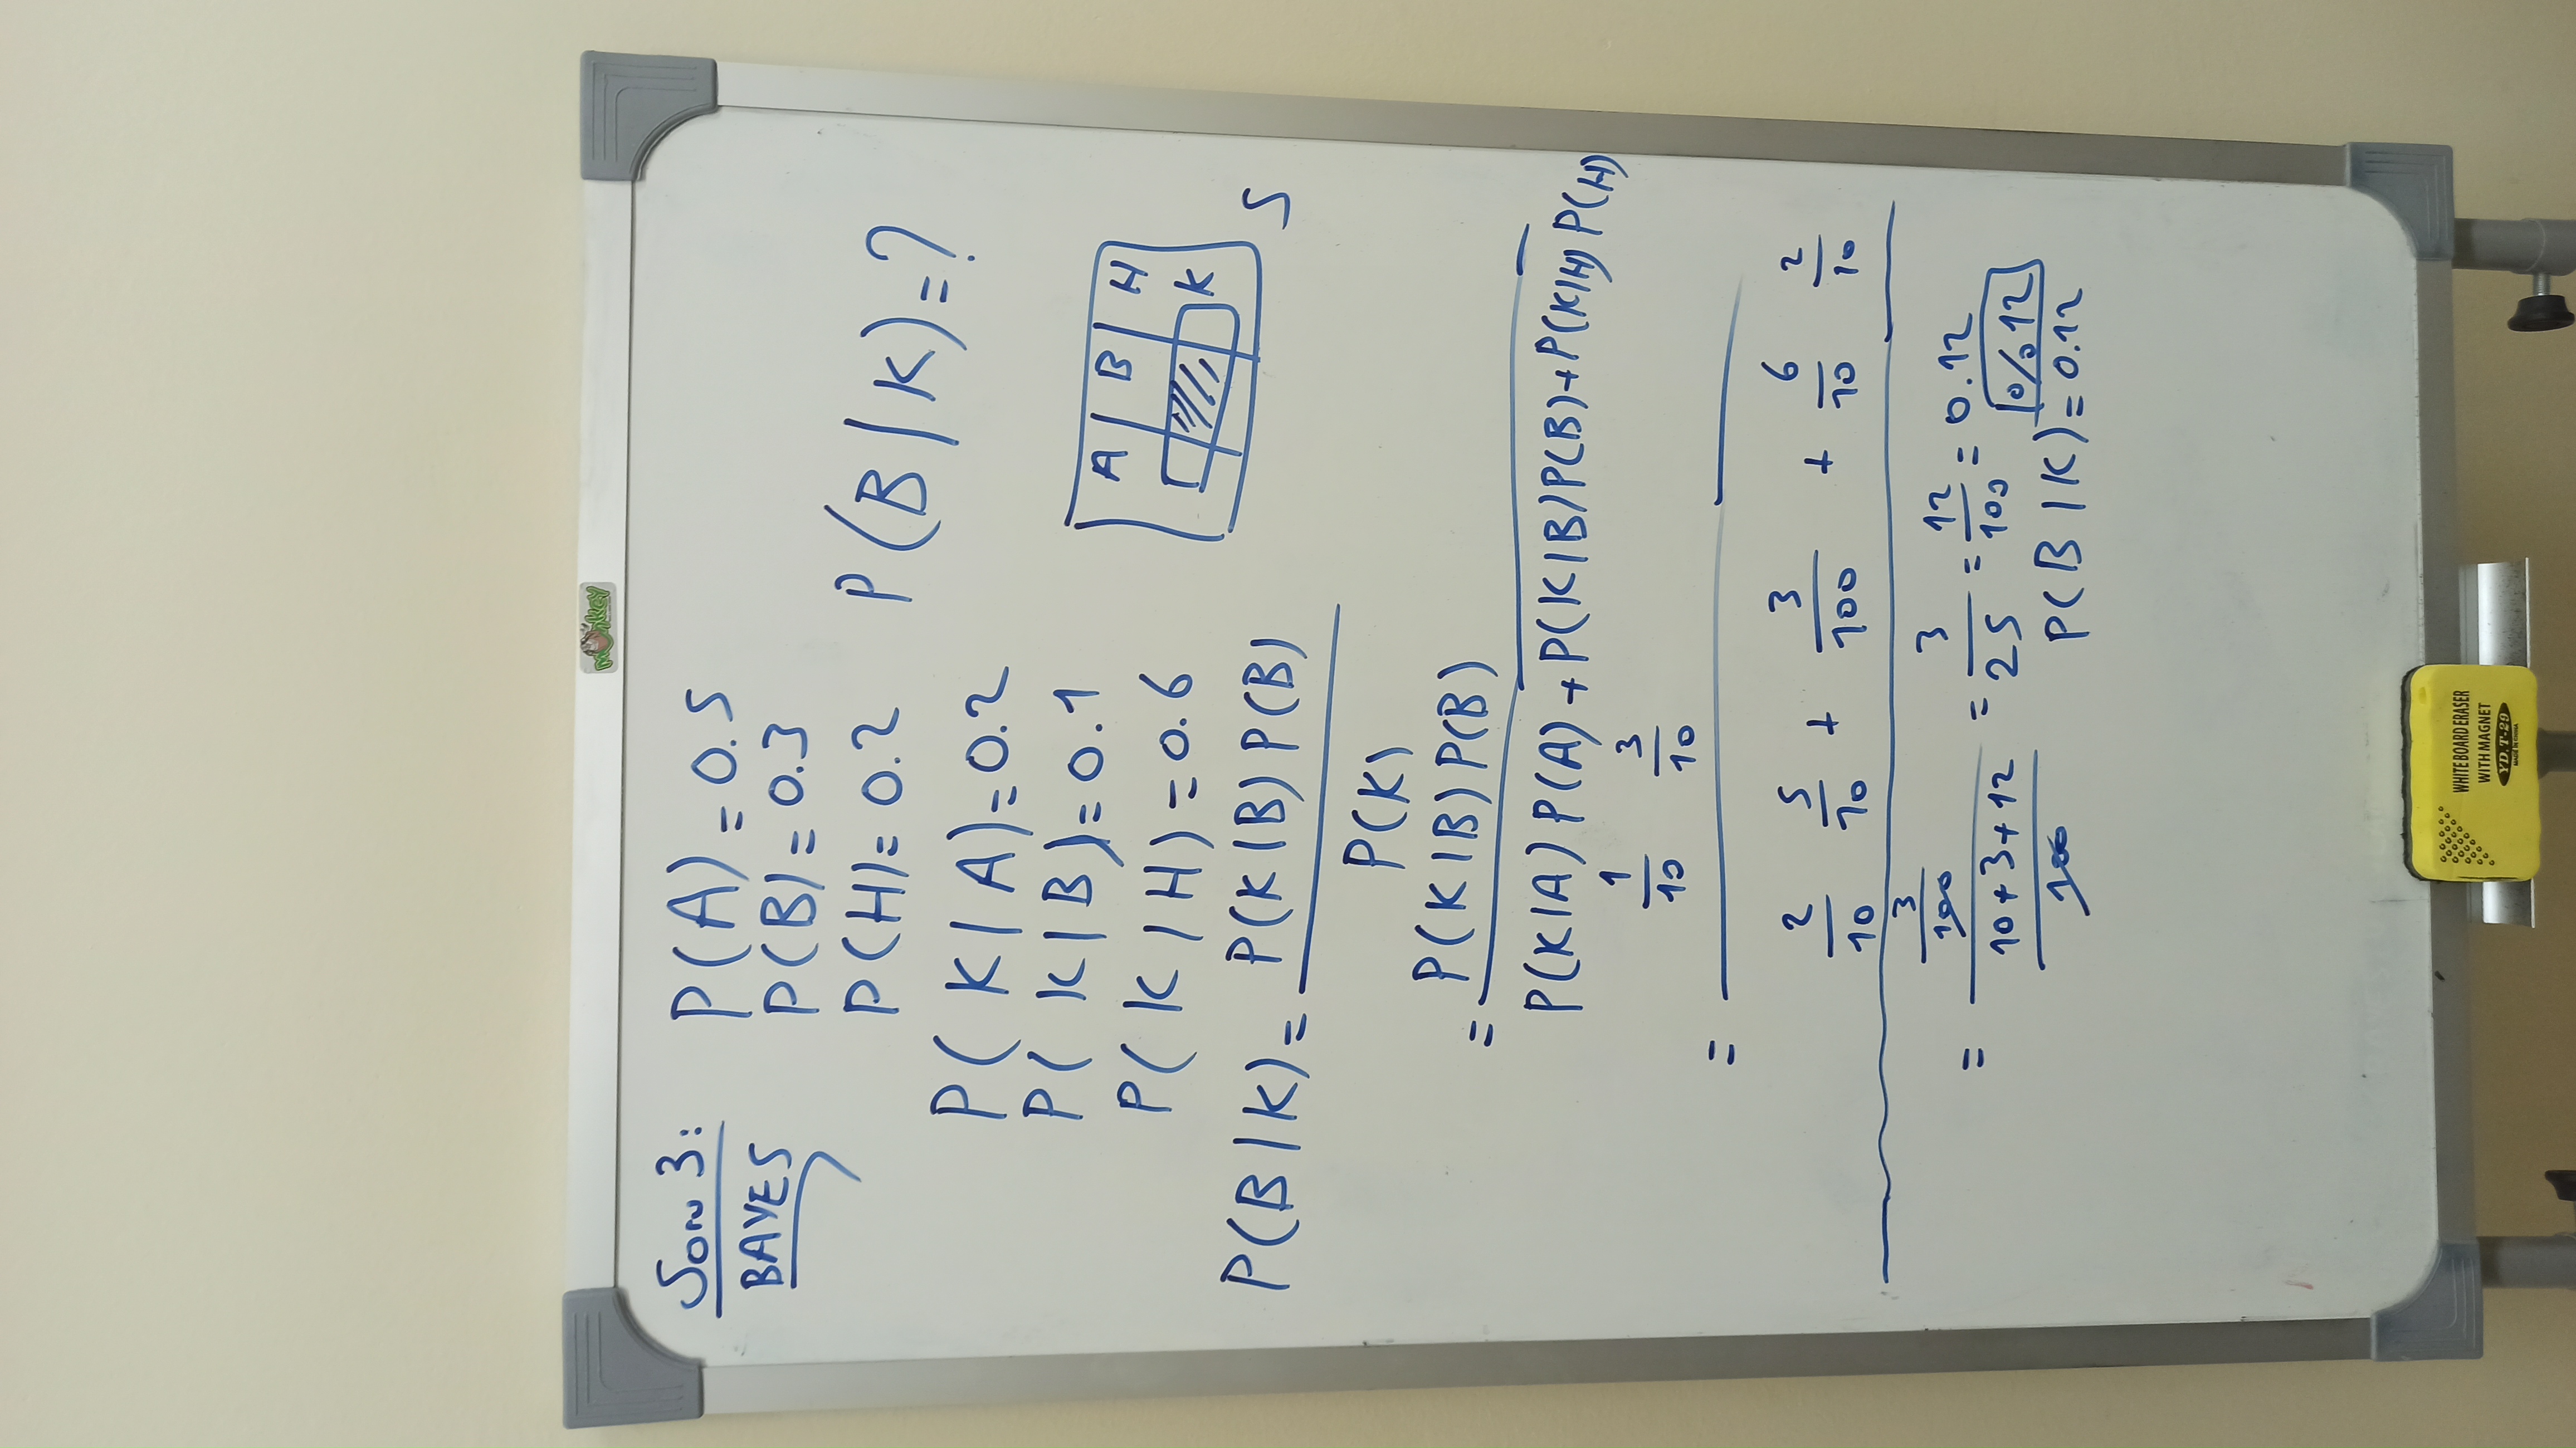 monkey
Soru 3:
BAYES
P(A) = 0.5
P(B) = 0.3
P(H) = 0.2
P(B/K) = ?
P(K|A) = 0.2
P(K|B) = 0.1
P(K/H) = 0.6
A B H
K
S
P(B|K) = P(K|B) P(B)
P(K)
= P(K|B) P(B)
P(K|A) P(A) + P(K|B) P(B) + P(K|H) P(H)
1/10 3/10
=
2/10 5/10 + 3/100 + 6/10 2/10
= 3/100 = 3/25 = 12/100 = 0.12
10+3+12/100
%12
P(B|K) = 0.12
WHITE BOARD ERASER
WITH MAGNET
YD.T-29
MADE IN CHINA